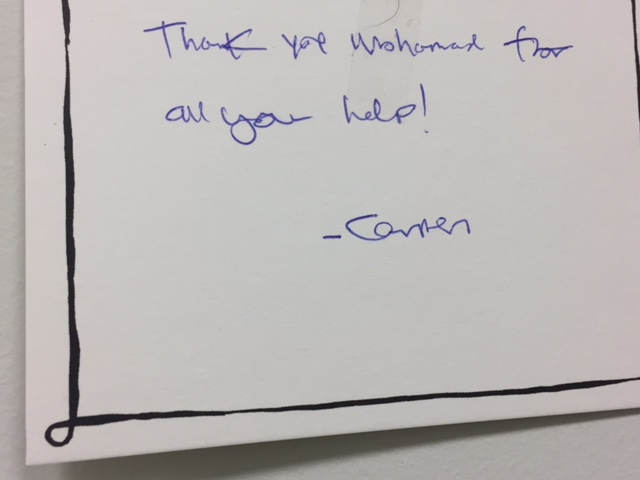 Thank you Mohamad for
all your help!
-Carmen